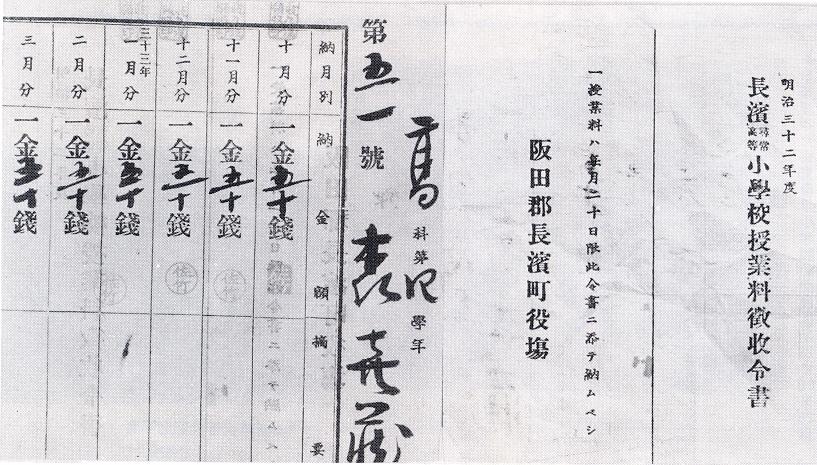 明治三十二年度
長濱尋常高等小學校授業料徴收令書
一授業料ハ毎月二十日限此令書ニ添テ納ムベシ
阪田郡長濱町役塲
高科第四學年
第五一號
納月別 納金額 摘要
十月分 一金五十錢
十一月分 一金五十錢
十二月分 一金五十錢
三十三年一月分 一金五十錢
二月分 一金五十錢
三月分 一金五十錢